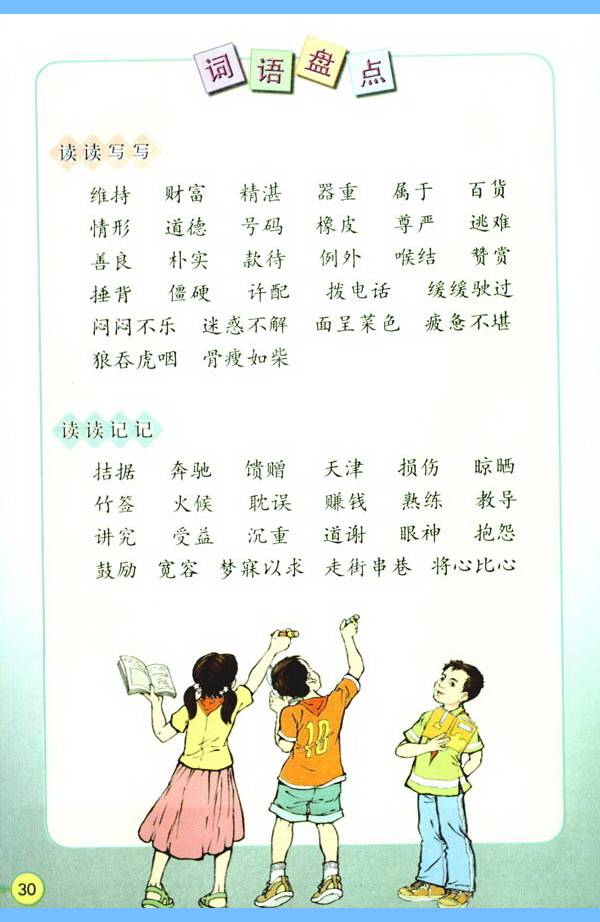 词语盘点
读读写写
维持 财富 精湛 器重 属于 百货
情形 道德 号码 橡皮 尊严 逃难
善良 朴实 款待 例外 喉结 赞赏
捶背 僵硬 许配 拨电话 缓缓驶过
闷闷不乐 迷惑不解 面呈菜色 疲惫不堪
狼吞虎咽 骨瘦如柴
读读记记
拮据 奔驰 馈赠 天津 损伤 晾晒
竹签 火候 耽误 赚钱 熟练 教导
讲究 受益 沉重 道谢 眼神 抱怨
鼓励 宽容 梦寐以求 走街串巷 将心比心
10
30